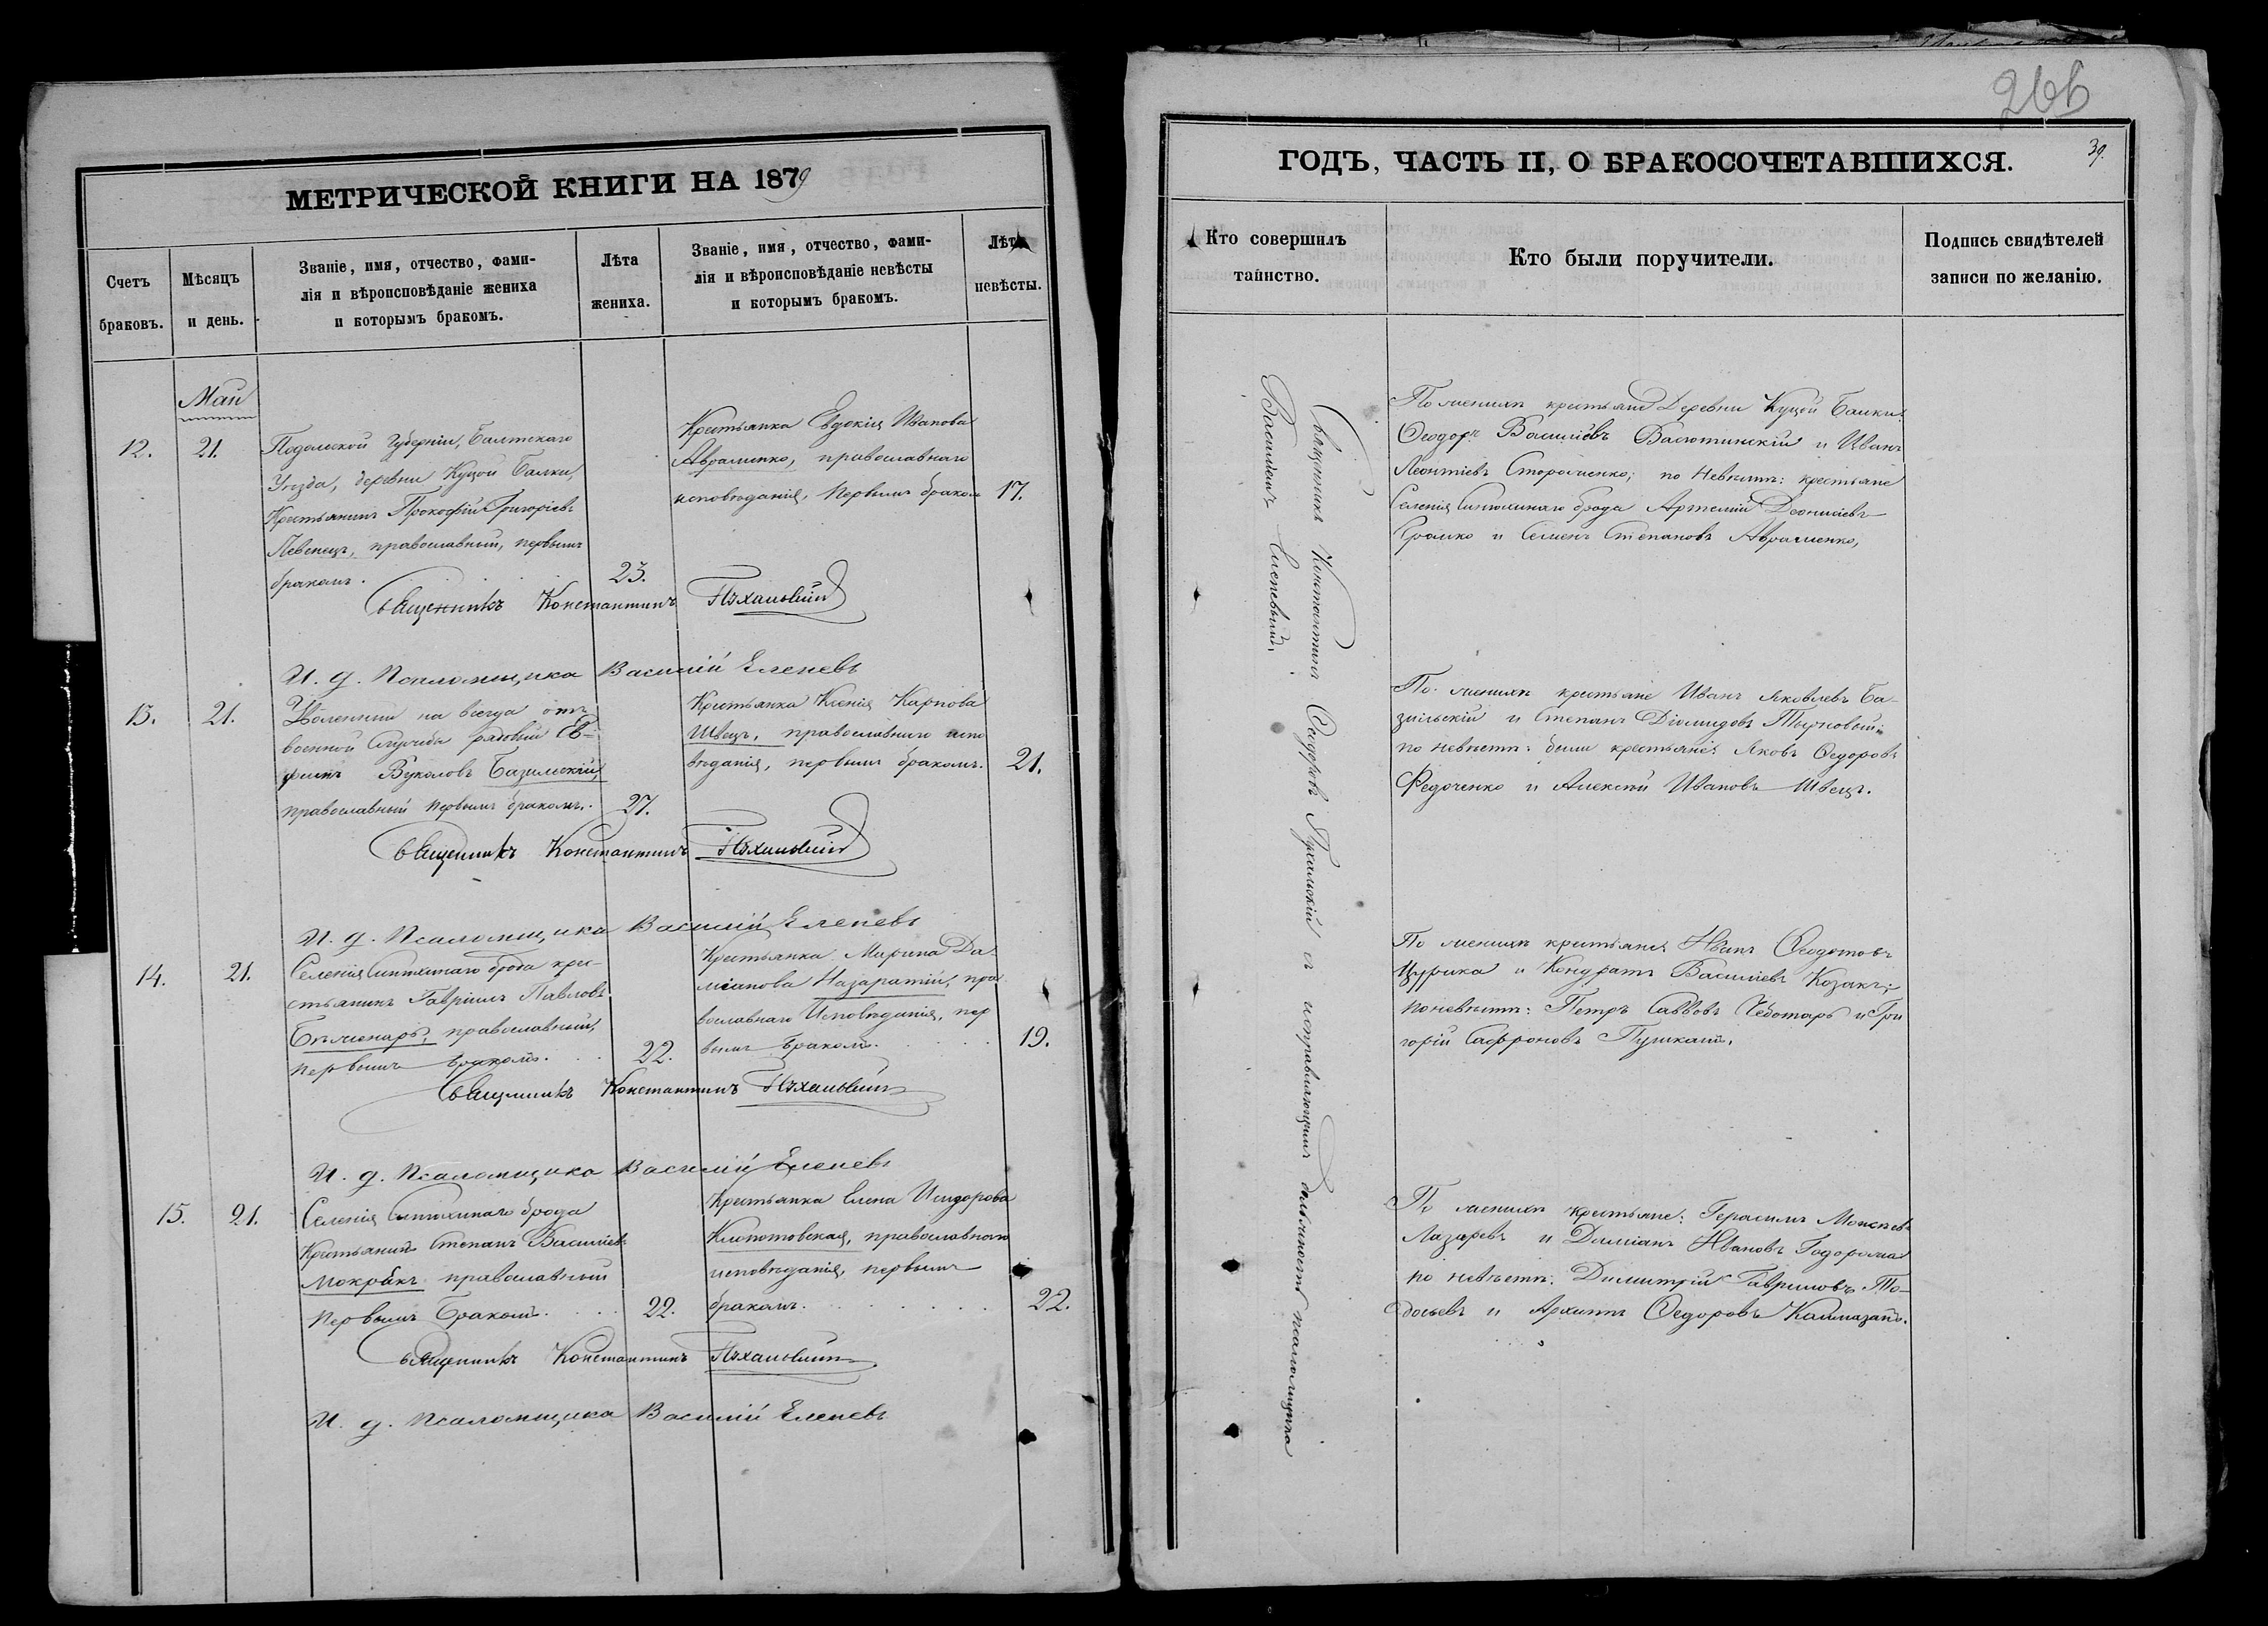 МЕТРИЧЕСКОЙ КНИГИ НА 1879
Счетъ браковъ.
Мѣсяцъ и день.
Званіе, имя, отчество, фами-
лія и вѣроисповѣданіе жениха
и которымъ бракомъ.
Лѣта жениха.
Званіе, имя, отчество, фами-
лія и вѣроисповѣданіе невѣсты
и которымъ бракомъ.
Лѣта невѣсты.
Май
12.
21.
Подольской Губерніи, Балтскаго
Уѣзда, деревни Куцой Балки,
Крестьянинъ Прокофій Григоріевъ
Левенецъ, православный, первымъ
бракомъ.
23.
Крестьянка Евдокія Иванова
Авраменко, православнаго
исповѣданія, первымъ бракомъ
17.
Священникъ Константинъ
И. д. Псаломщика Василій Еленевъ
13.
21.
Уволенный на всегда отъ
военной службы рядовый Ев-
фимъ Вуколовъ Базильскій,
православный первымъ бракомъ.
27.
Крестьянка Ксенія Карпова
Швецъ, православнаго испо
вѣданія, первымъ бракомъ.
21.
Священникъ Константинъ
И. д. Псаломщика Василій Еленевъ
14.
21.
Селенія Синюхинаго брода крес-
стьянинъ Гавріилъ Павловъ
православный,
первымъ бракомъ.
22.
Крестьянка Марина Да-
міанова Назаратій, пра
вославнаго Исповѣданія, пер
вымъ бракомъ.
19.
Священникъ Константинъ
И. д. Псаломщика Василій Еленевъ
15.
21.
Селенія Синюхинаго брода
Крестьянинъ Степанъ Василіевъ
Мокрякъ православный
первымъ бракомъ.
22.
Крестьянка Елена Исидорова
Клопотовская, православнаго
исповѣданія, первымъ
бракомъ.
22.
Священникъ Константинъ
И. д. Псаломщика Василій Еленевъ
266
39.
ГОДЪ, ЧАСТЬ II, О БРАКОСОЧЕТАВШИХСЯ.
Кто совершилъ
таинство.
Кто были поручители.
Подпись свидѣтелей
записи по желанію.
Священникъ Константинъ Ѳеодоровъ съ исправляющимъ должность псаломщика
Василіемъ
По женихѣ крестьяне Деревни Куцой Балки:
Ѳеодоръ Василіевъ Васютинскій и Иванъ
Леонтіевъ Стороженко; по Невѣстѣ: крестьяне
Селенія Синюхинаго брода Артемій Діонисіевъ
и Семенъ Степановъ Авраменко,
По женихѣ крестьяне Иванъ Яковлевъ Ба-
зильскій и Степанъ Діомидовъ
по невѣстѣ: были крестьяне Яковъ Ѳедоровъ
Федоченко и Алексѣй Ивановъ Швецъ.
По женихѣ крестьяне Иванъ Ѳеодотовъ
Цурика и Кондратъ Василіевъ Козакъ;
по невѣстѣ: Петръ Саввовъ Чеботарь и Гри
горій Сафроновъ Пушкашъ.
По женихѣ крестьяне: Герасимъ Моисѣевъ
Лазаревъ и Даміанъ Ивановъ
по невѣстѣ: Димитрій Гавриловъ То-
досьевъ и Архипъ Ѳедоровъ Каймазанъ.